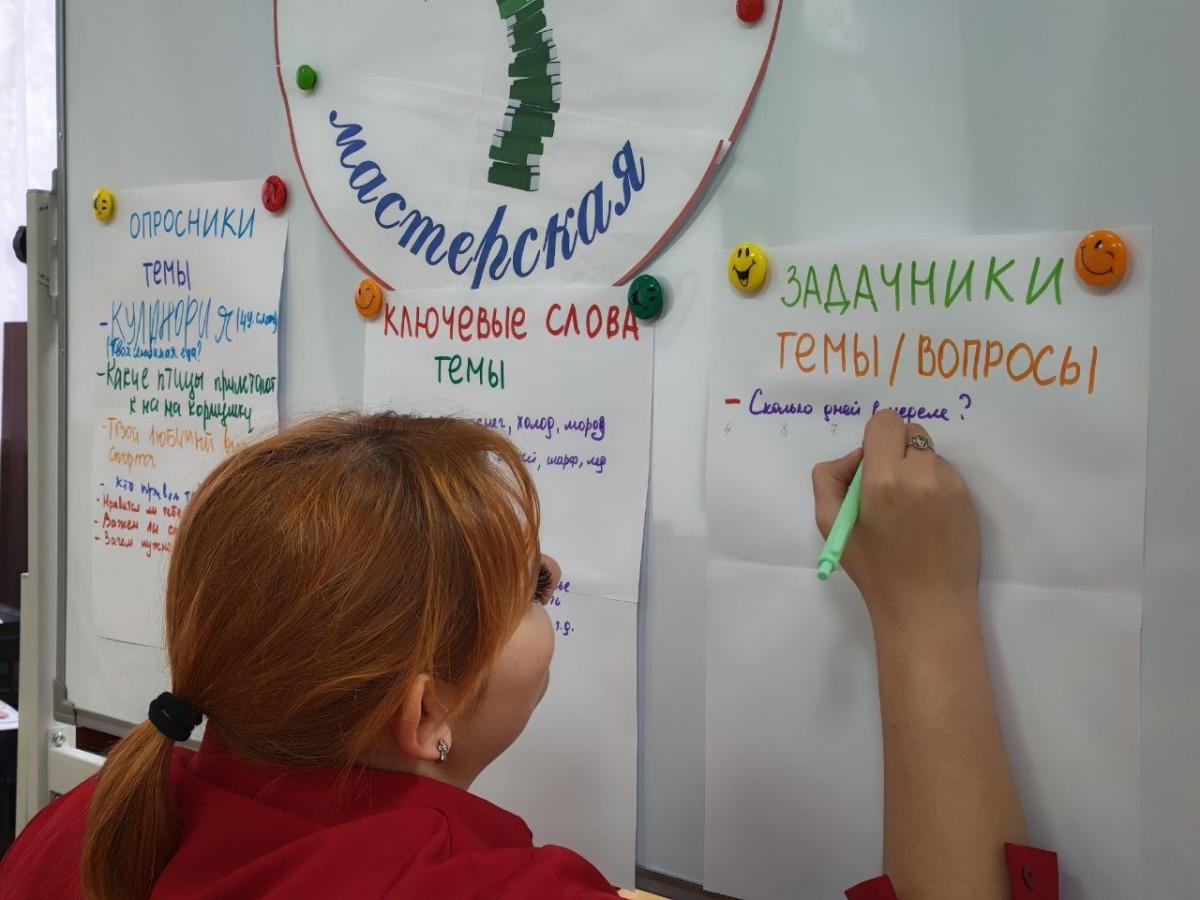 мастерская
ОПРОСНИКИ
ТЕМЫ
- КУЛИНОРИЯ
(Твоя любимая еда?
- Какие птицы прилетают
к на на кормушку
- Твой любимый
спорта
- Кто привил
- Нравится ли тебе
- Важен ли
- Зачем нужно
КЛЮЧЕВЫЕ СЛОВА
ТЕМЫ
снег, холод, мороз
, шарф, лед
ЗАДАЧНИКИ
ТЕМЫ / ВОПРОСЫ
- Сколько дней в неделе?
4 8 7